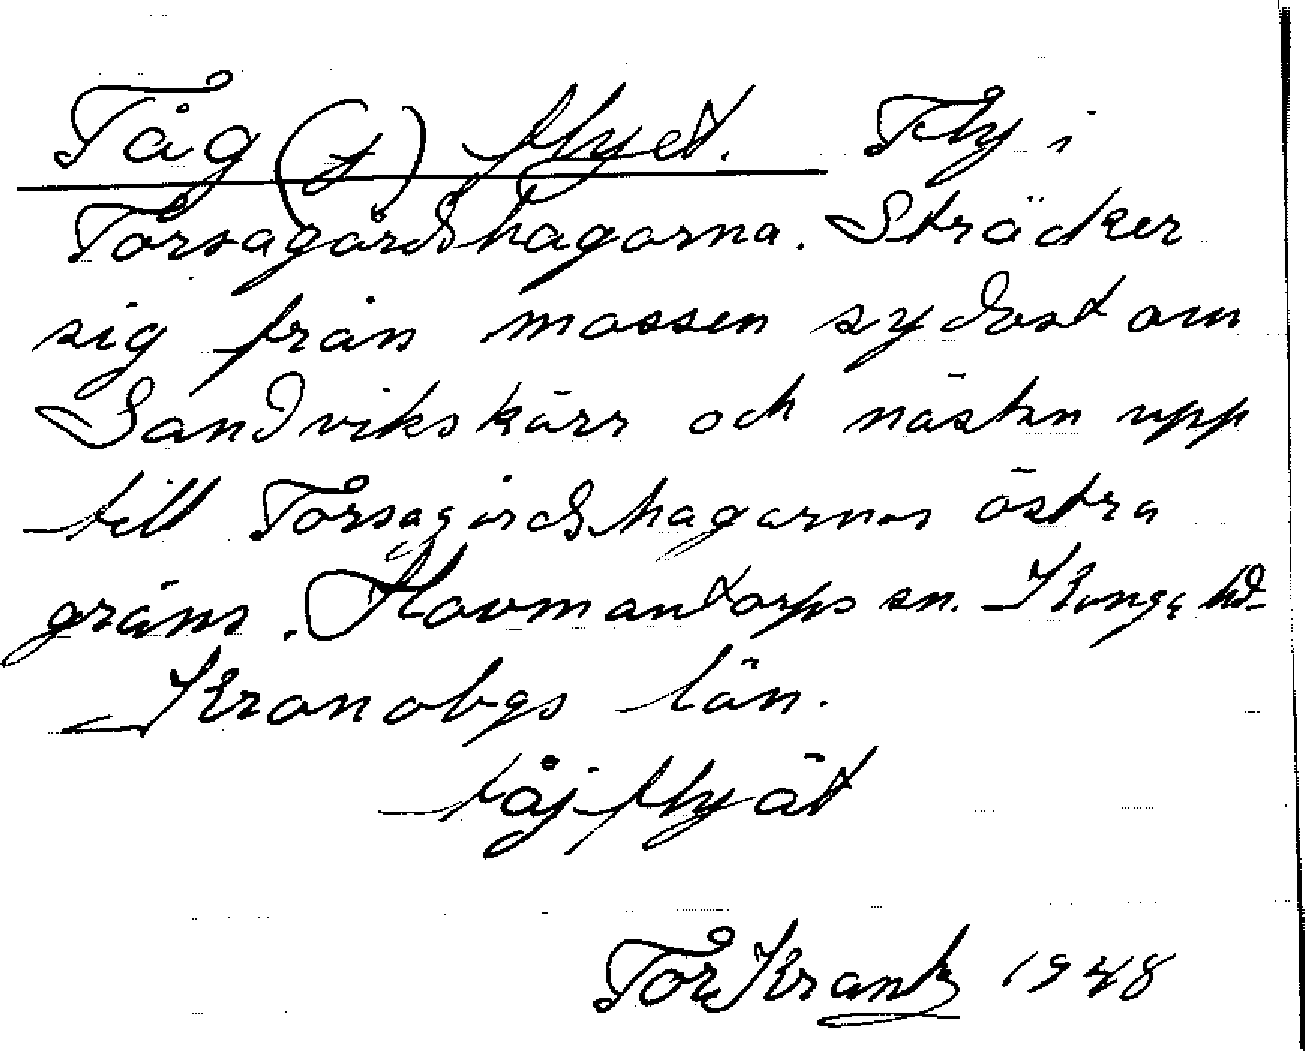 Tåg(s)flyet. Fly i
Torsagårdshagarna. Sträcker
sig från mossen sydost om
Sandvikskärr och nästan upp
till Torsagårdshagarnas östra
gräns. Hovmantorps sn. Konga hd.
Kronobgs län.
tåjflyät
Tore Krantz 1948